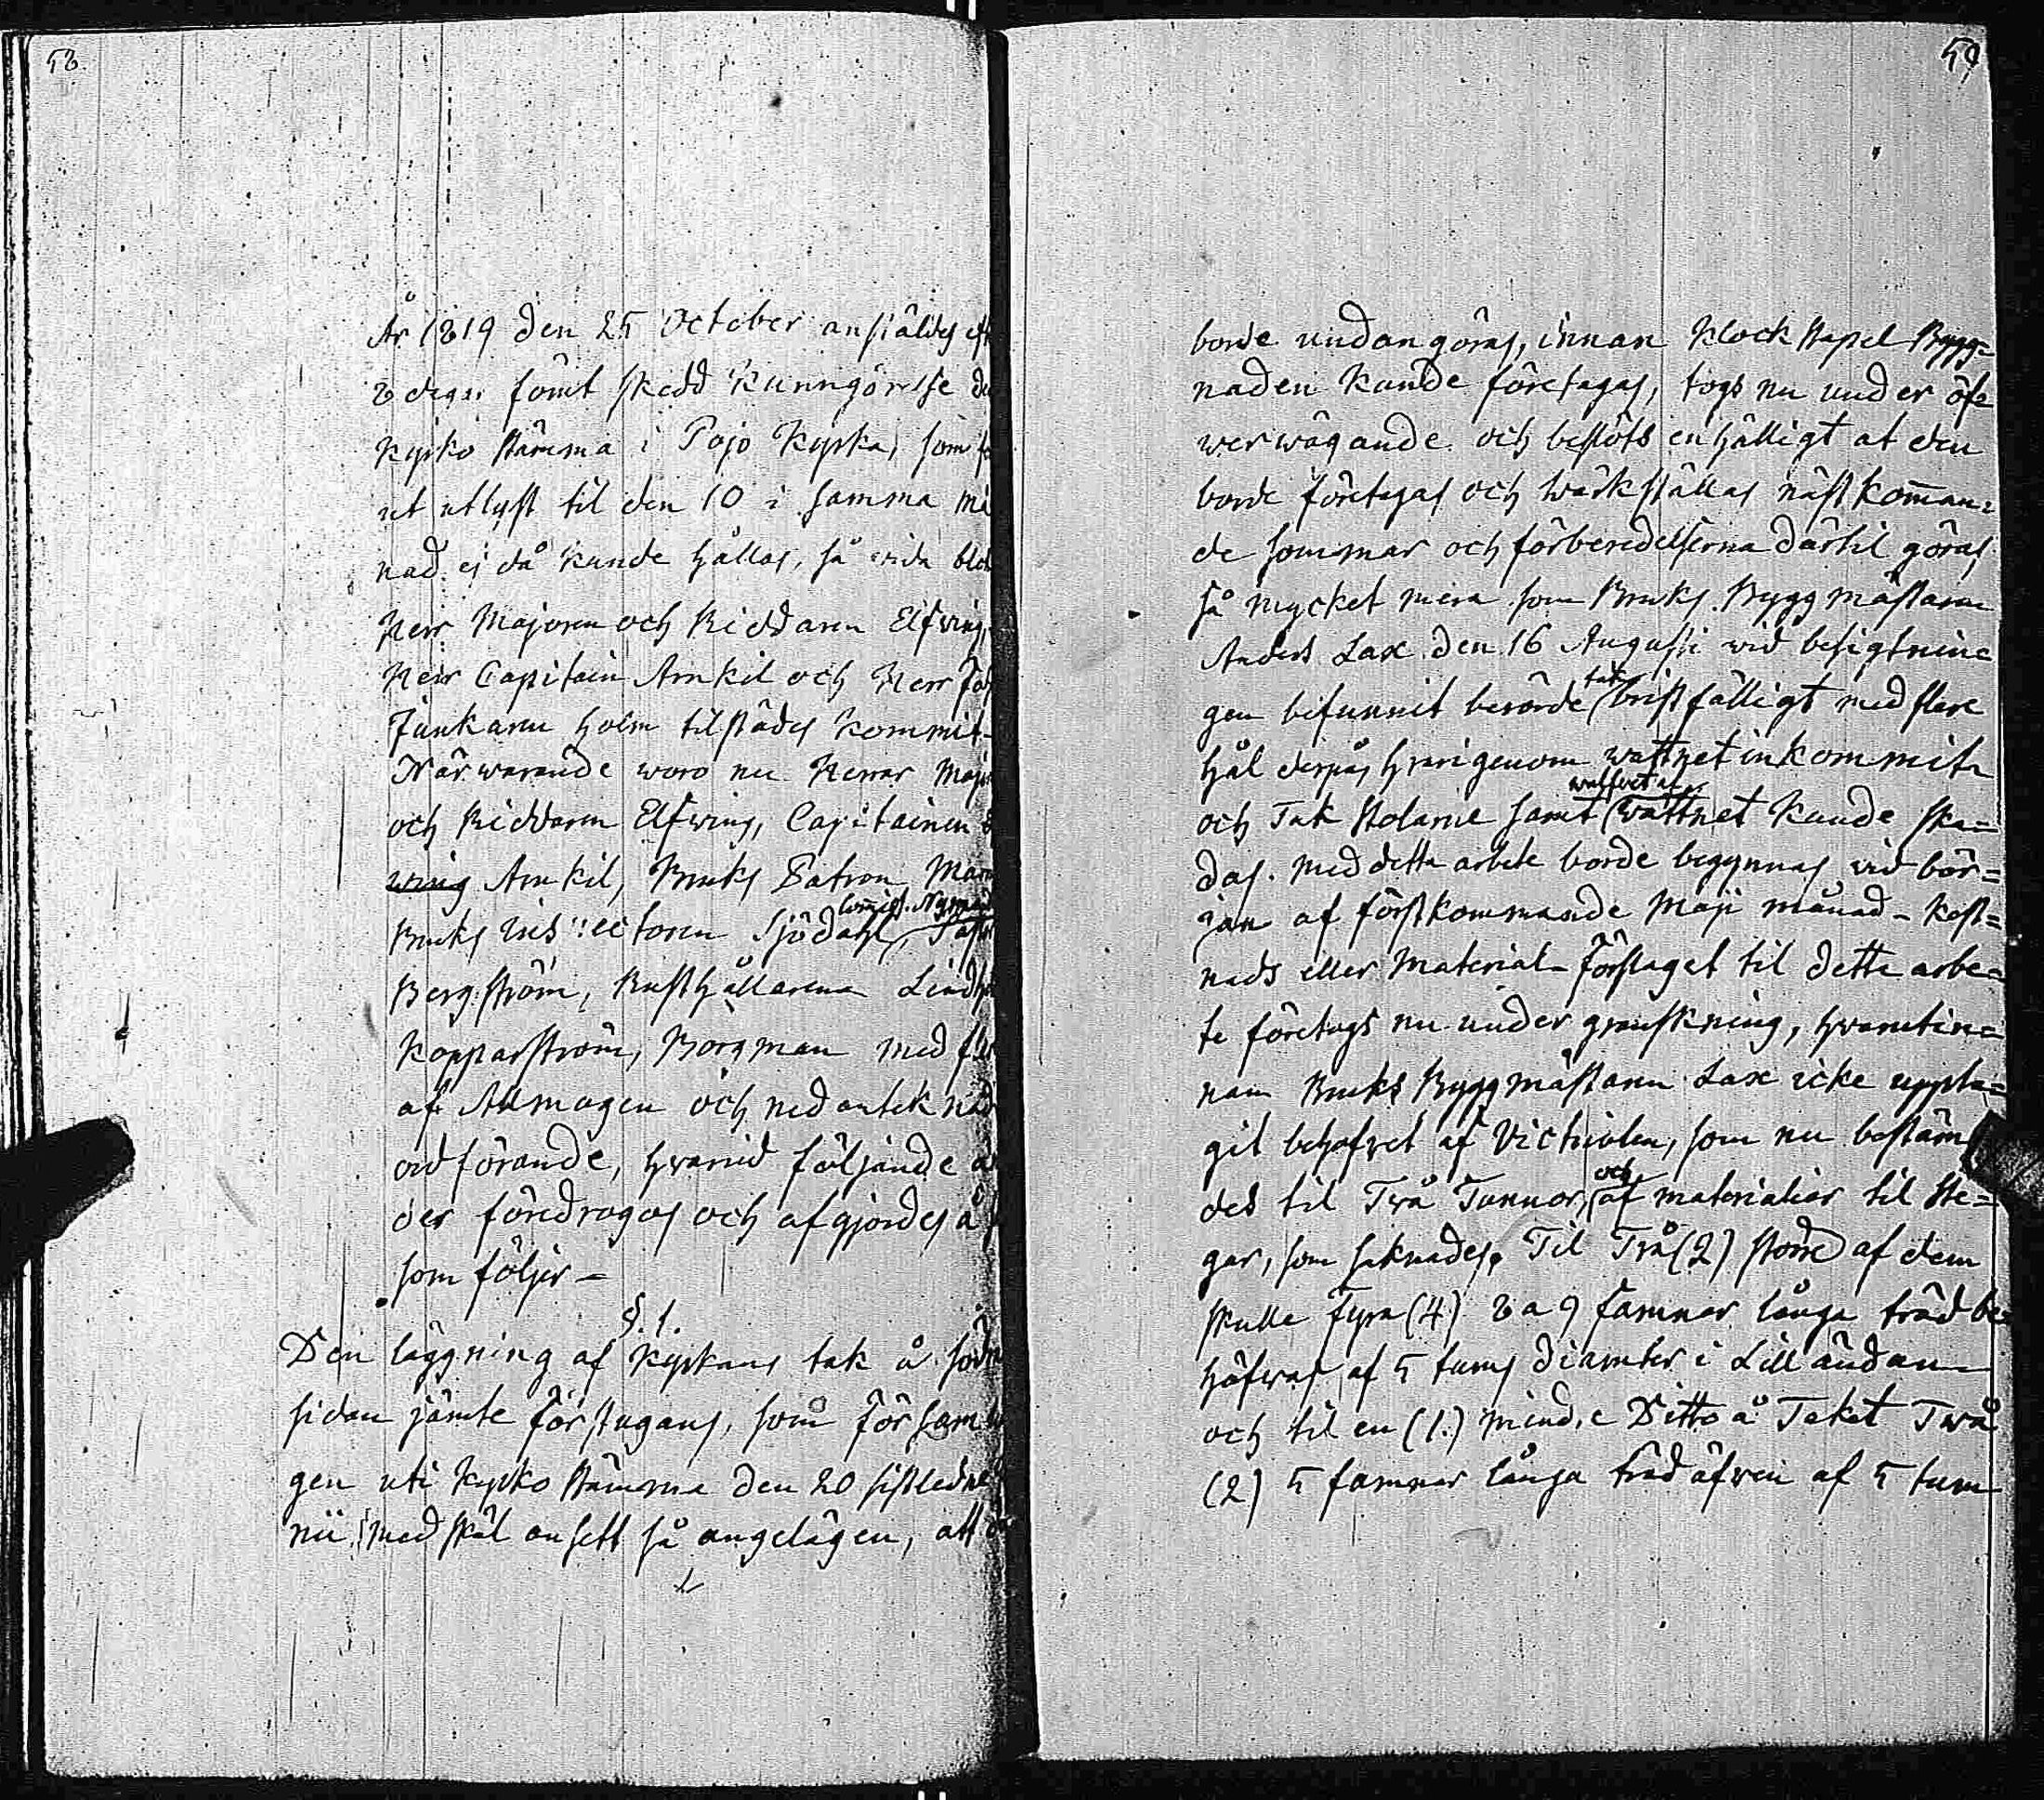 58.
År 1819 den 25 October anstäldes eft
8 dagar förut skedd kunngörelse de
Kyrko stämma i Pojo Kyrka, som fö
ut utlyst til den 10 i samma må
nad ej då kunde hållas, så wida
Herr Majoren och Riddaren Elfwing,
Herr Capitain Arnkil och Herr
Junkaren Holm tilstädes kommit.
Närwarande woro nu Herrar Major
och Riddaren Elfwing, Capitainen
wing Arnkil, Bruks Patron
Commiss. Nyman
Bruks Inspectoren Sjödahl,
Bergström, Rusthållarena
Kopparström, Borgman med
af Allmogen och nedanteknad
ordförande, hwarvid följande
der föredrogos och afgjordes
som följer –
§. 1.
Den läggning af Kyrkans tak å södra
sidan jämte förstugans, som försam
gen uti Kyrko stämma den 20 sistledne
nii med skäl ansett så angelägen, att
59
borde undangöras, innan Klockstapel Bygg=
naden kunde företagas, togs nu under öf=
werwägande och beslöts enhälligt at den
borde företagas och wärkställas nästkom̄an=
de sommar och förberedelserna därtil göras
så mycket mera som Bruks Byggmästaren
Anders Lax den 16 Augusti wid besigtnin=
tak
gen befunnit berörde bristfälligt med flere
hål derpå, hvarigenom wattnet inkommit
och Takstolarne samt wattnet kunde ska=
das. Med detta arbete borde begynnas wid bör=
jan af förstkommande Maji månad – Kost=
nads eller Material-Förslaget til detta arbe=
te företogs nu under granskning, hwarutin=
nan Bruks Byggmästaren Lax icke uppta=
git behofwet af Victriolen, som nu bestäm
och
des til Två Tunnor, af materialier til Ste=
gar, som saknades. Til Två (2) större af dem
skulle Fyra (4) 8 a 9 famnar långa träd be=
höfwas af 5 tums diamter i Lilländan
och til en (1.) mindre Ditto å Taket Twå
(2) 5 famnar långa träd äfwen af 5 tum